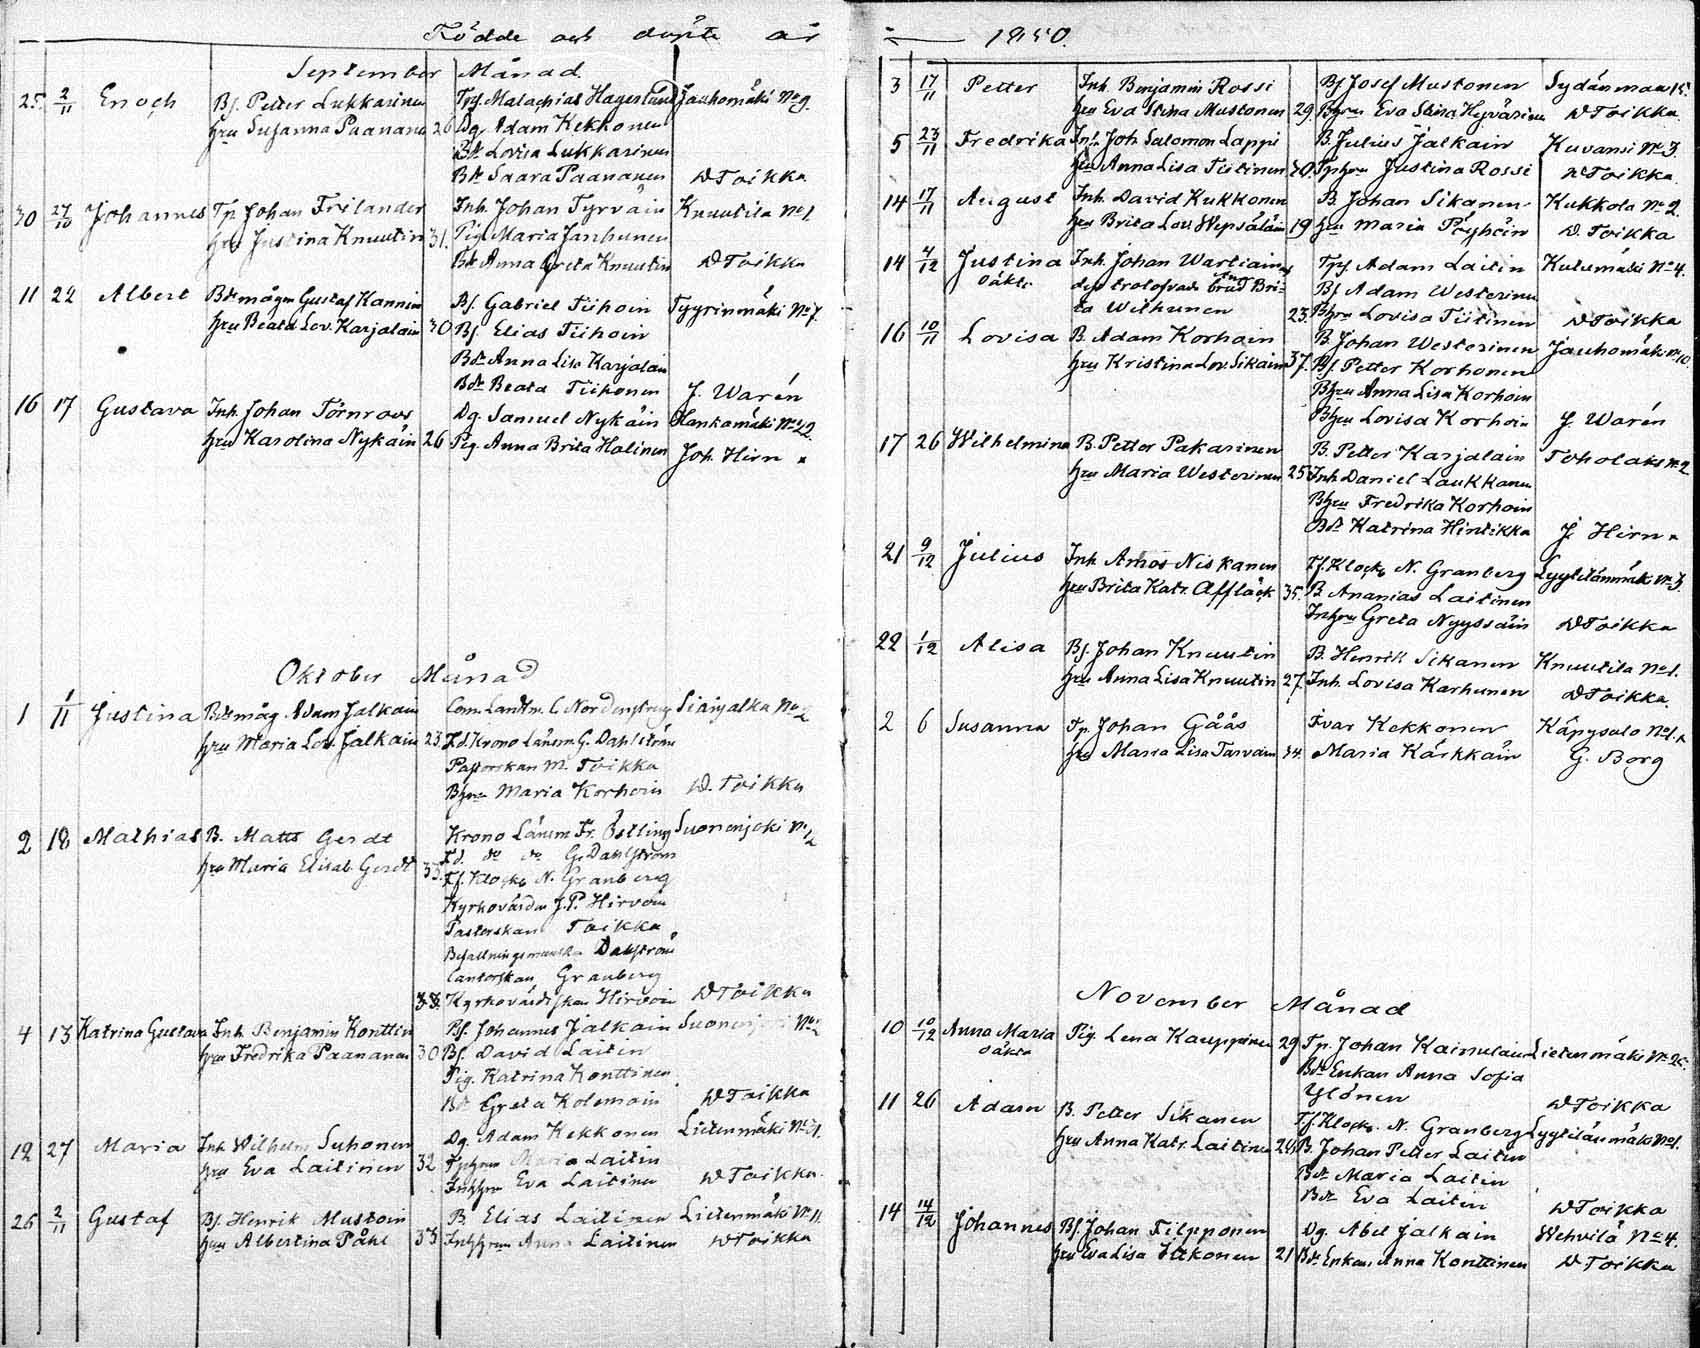 Födde och döpte år
September Månad
25. 2/11 Enoch Bs. Petter Lukkarinen Tps. Malachias Hagerlund Jauhomäki No 9.
hru Susanna Paananen 26 Dg. Adam Kekkonen
Bdr Lovisa Lukkarinen
Bdr Saara Paananen W Toikka
30 27/10 Johannes Tp. Johan Frilander Inh. Johan Tyrväin Knuutila No 1
hru Justina Knuutin 31. Pig. Maria Janhunen
Bdr Anna Greta Knuutin W Toikka
11 22 Albert Bdrmåg Gustaf Hannin Bs. Gabriel Tiihoin Tyyrinmäki No 7.
hru Beata Lov. Karjalain 30 Bs. Elias Tiihoin
Bdr Anna Lisa Karjalain
Bdr Beata Tiihonen J. Warén
16 17 Gustava Inh. Johan Törnroos Dg. Samuel Nykäin Hankamäki No 22.
hru Karolina Nykäin 26 Pig. Anna Brita Halinen Joh. Hirn
Oktober Månad
1 1/11 Justina Bdrmåg Adam Jalkain Com. Landtm. C Nordenstreng Siäinjalka No 2
hru Maria Lov. Jalkain 23. T.d. Krono Länsm. G. Dahlström
Pastorskan M. Toikka
Bhru Maria Korhoin W. Toikka
2 18 Mathias B. Matts Gerdt Krono Länsm Fr. Östling Suonenjoki No 1/2
hru Maria Elisab. Gerdt 33. T.d. do do G. Dahlström
Tf. Klock. N. Granberg
Kyrkovärden J. P. Hirvoin
Pastorskan Toikka
Befallningsmanska Dahlström
Cantorskan Granberg
33. Kyrkovärdskan Hirvoin W Toikka
4 13 Katrina Gustava Inh. Benjamin Konttin Bs. Johannes Jalkain Suonenjoki No 1/2
hru Fredrika Paananen 30 Bs. David Laitin
Pig. Katrina Konttinen
Bdr Greta Kolemain W Toikka
12 27 Maria Inh. Wilhelm Suhonen Dg. Adam Kekkonen Lietenmäki No 21.
hru Eva Laitinen 32 Tpshru Maria Laitin
Inhhru Eva Laitinen W Toikka
26 2/11 Gustaf Bs. Henrik Mustoin B. Elias Laitinen Lietenmäki No 11.
hru Albertina Påhl 33 Inhhru Anna Laitinen W Toikka
1850.
3 17/11 Petter Inh. Benjamin Rossi Bs. Josef Mustonen Sydänmaa 15.
hru Eva Stina Mustonen 29. Bhru Eva Stina Hyvärinen W Toikka
5 23/11 Fredrika Inh. Joh. Salomon Lappi B. Julius Jalkain Kuvansi No 3.
hru Anna Lisa Tiitinen 30. Tphru Justina Rossi W Toikka
14 17/11 August Inh. David Kukkonen B. Johan Sikanen Kukkola No 2.
hru Brita Lov. Wepsäläin 19 hru Maria Pöyhöin W. Toikka
14 4/12 Justina Inh. Johan Wartiainen Tps. Adam Laitin Kutumäki No 4.
oäkta dess trolofvade brud Anna Bri- Bs. Adam Westerinen
ta Wilhunen 23. Bhru Lovisa Tiitinen W Toikka
16 10/11 Lovisa B. Adam Korhoin B. Johan Westerinen Jauhomäki No 10.
hru Kristina Lov. Sikain 37. Bs. Petter Korhonen
Bhru Anna Lisa Korhoin
Bhru Lovisa Korhoin J. Warén
17 26 Wilhelmina B. Petter Pakarinen B. Petter Karjalain Toholaks No 2
hru Maria Westerinen 25 Inh. Daniel Laukkanen
Bhru Fredrika Korhoin
Bdr Katrina Hintikka J. Hirn
21 9/12 Julius Inh. Amos Niskanen Tf. Klock. N. Granberg Lyytilänmäki No 3.
hru Brita Katr. Affläck 35. B. Ananias Laitinen
Inhhru Greta Nyyssöin W Toikka
22 1/12 Alisa Bs. Johan Knuutin B. Henrik Sikanen Knuutila No 1.
hru Anna Lisa Knuutin 27 Inh. Lovisa Karhunen W Toikka
2 6 Susanna Tp. Johan Gåås Ivar Kekkonen Käpysalo No 1.
hru Maria Lisa Tarvain 34. Maria Kärkkäin G. Borg
November Månad
10 10/12 Anna Maria Pig. Lena Kauppinen 29 Tp. Johan Kainulain Lietenmäki No 25.
oäkta Bdr Enkan Anna Sofia
Ylönen W Toikka
11 26 Adam B. Petter Sikanen Tf. Klock. N. Granberg Lyytilänmäki No 1.
hru Anna Katr. Laitinen 24 B. Johan Petter Laitin
Bdr Maria Laitin
Bdr Eva Laitin W Toikka
14 14/12 Johannes Bs. Johan Tilpponen Dg. Abel Jalkain Wehvilä No 4.
hru Eva Lisa Ilkkonen 21 Bdr Enkan Anna Konttinen W Toikka